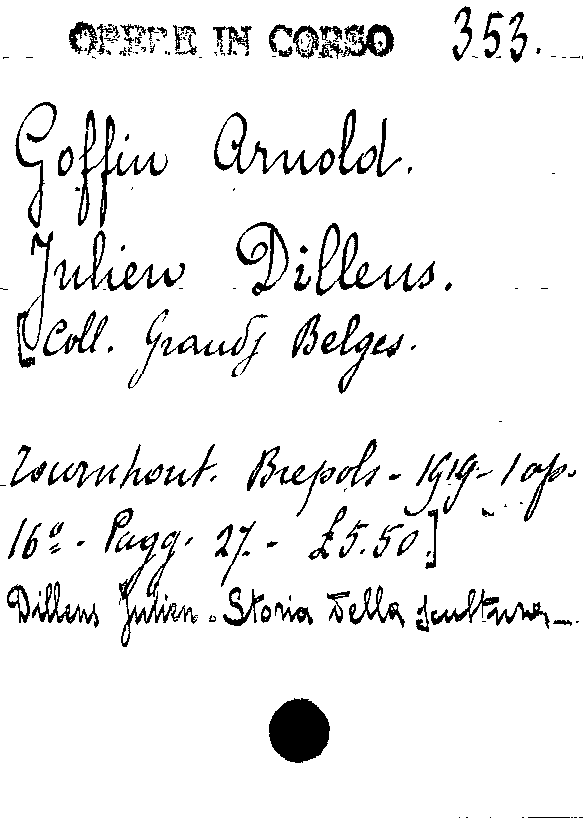 OPERE IN CORSO 353.
Goffin Arnold.
Julien Dillens.
[Coll. Grands Belges.
Tournhout. Brepols - 1919 - 1 op.
16º - Pagg. 27. - £5.50.]
Dillens Julien. Storia della scultura -